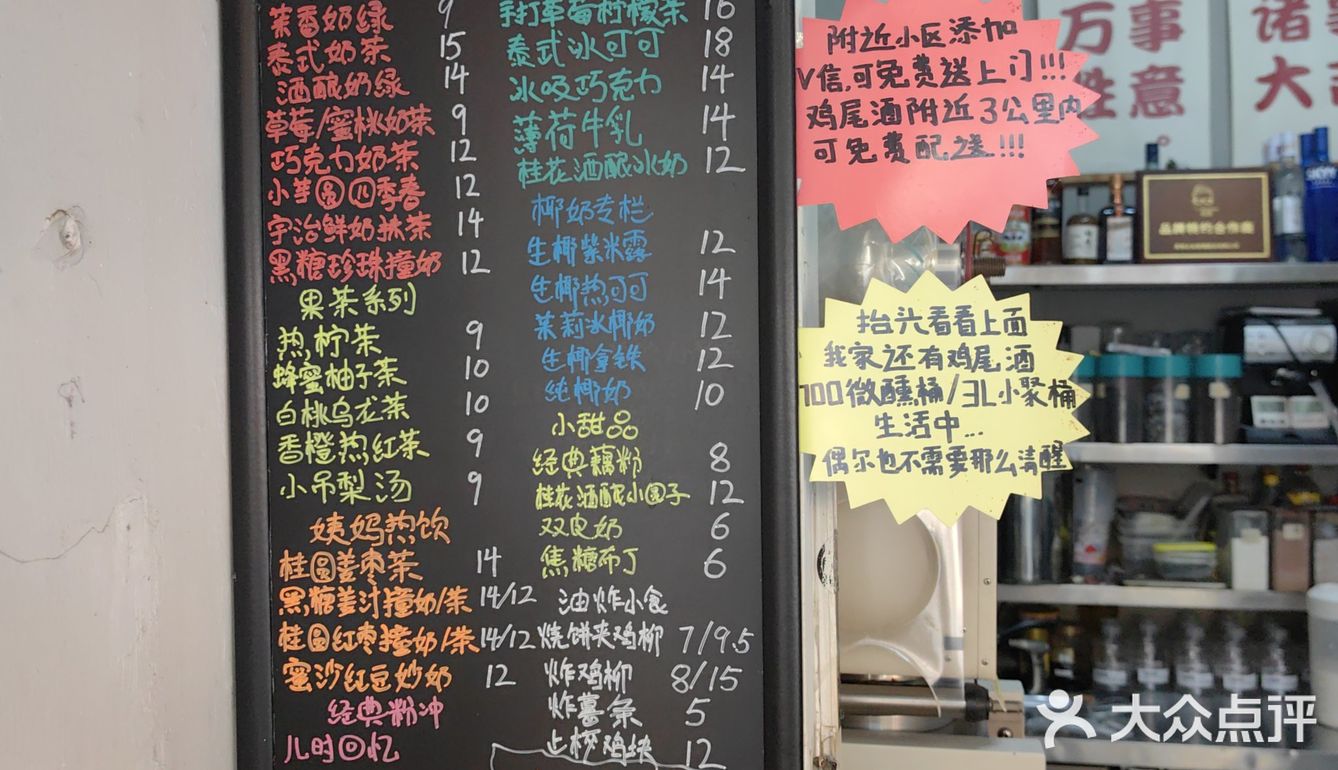 茉香奶绿 9
泰式奶茶 15
酒酿奶绿 14
草莓/蜜桃奶茶 9
巧克力奶茶 12
小芋圆四季春 12
宇治鲜奶抹茶 14
黑糖珍珠撞奶 12
果茶系列
热柠茶 9
蜂蜜柚子茶 10
白桃乌龙茶 10
香橙热红茶 9
小吊梨汤 9
姨妈热饮
桂圆姜枣茶 14
黑糖姜汁撞奶/茶 14/12
桂圆红枣撞奶/茶 14/12
蜜沙红豆炒奶 12
经典粉冲
儿时回忆
手打草莓柠檬茶 16
泰式冰可可 18
冰吸巧克力 14
薄荷牛乳 14
桂花酒酿冰奶 12
椰奶专栏
生椰紫米露 12
生椰热可可 14
茉莉冰椰奶 12
生椰拿铁 12
纯椰奶 10
小甜品
经典藕粉 8
桂花酒酿小圆子 12
双皮奶 6
焦糖布丁 6
油炸小食
烧饼夹鸡柳 7/9.5
炸鸡柳 8/15
炸薯条 5
鸡块 12
附近小区添加
V信,可免费送上门!!!
鸡尾酒附近3公里内
可免费配送!!!
抬头看看上面
我家还有鸡尾酒
700微醺桶/3L小聚桶
生活中...
偶尔也不需要那么清醒
万事
性意。
诸
大
品牌特约合作商
SKYY
大众点评